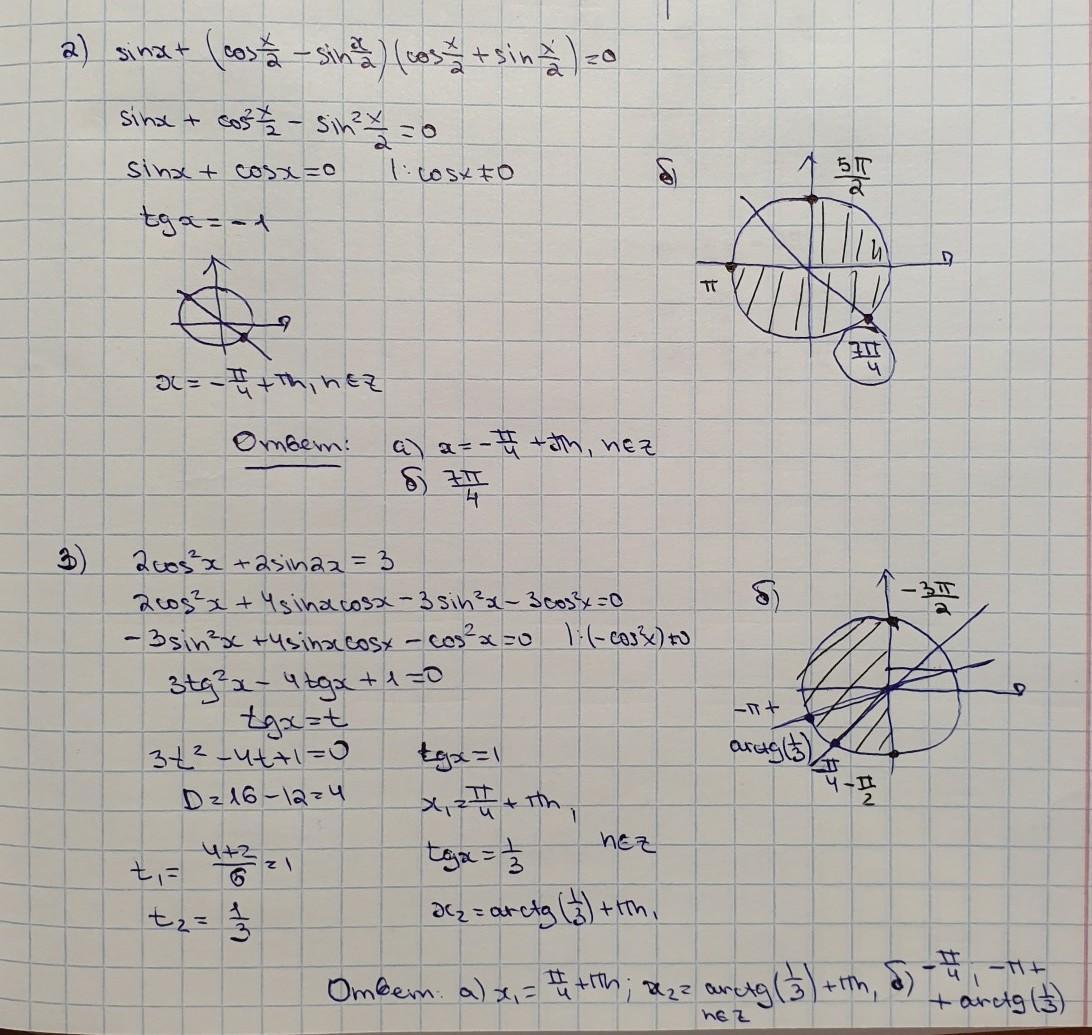 2) sinx + (cos x/2 - sin x/2)(cos x/2 + sin x/2) = 0
sinx + cos² x/2 - sin² x/2 = 0
sinx + cosx = 0 |: cosx ≠ 0
tgx = -1
x = -π/4 + πn, n∈Z
б)
5π/2
π
7π/4
Ответ: а) x = -π/4 + πn, n∈Z
б) 7π/4
3) 2cos²x + 2sin2x = 3
2cos²x + 4sinxcosx - 3sin²x - 3cos²x = 0
-3sin²x + 4sinxcosx - cos²x = 0 |: (-cos²x) ≠ 0
3tg²x - 4tgx + 1 = 0
tgx = t
3t² - 4t + 1 = 0
D = 16 - 12 = 4
t₁ = (4+2)/6 = 1
t₂ = 1/3
tgx = 1
x₁ = π/4 + πn,
tgx = 1/3
n∈Z
x₂ = arctg(1/3) + πn,
б)
-3π/2
-π +
arctg(1/3)
-π/4
-π/2
Ответ: а) x₁ = π/4 + πn; x₂ = arctg(1/3) + πn, n∈Z б) -π/4; -π +
+ arctg(1/3)